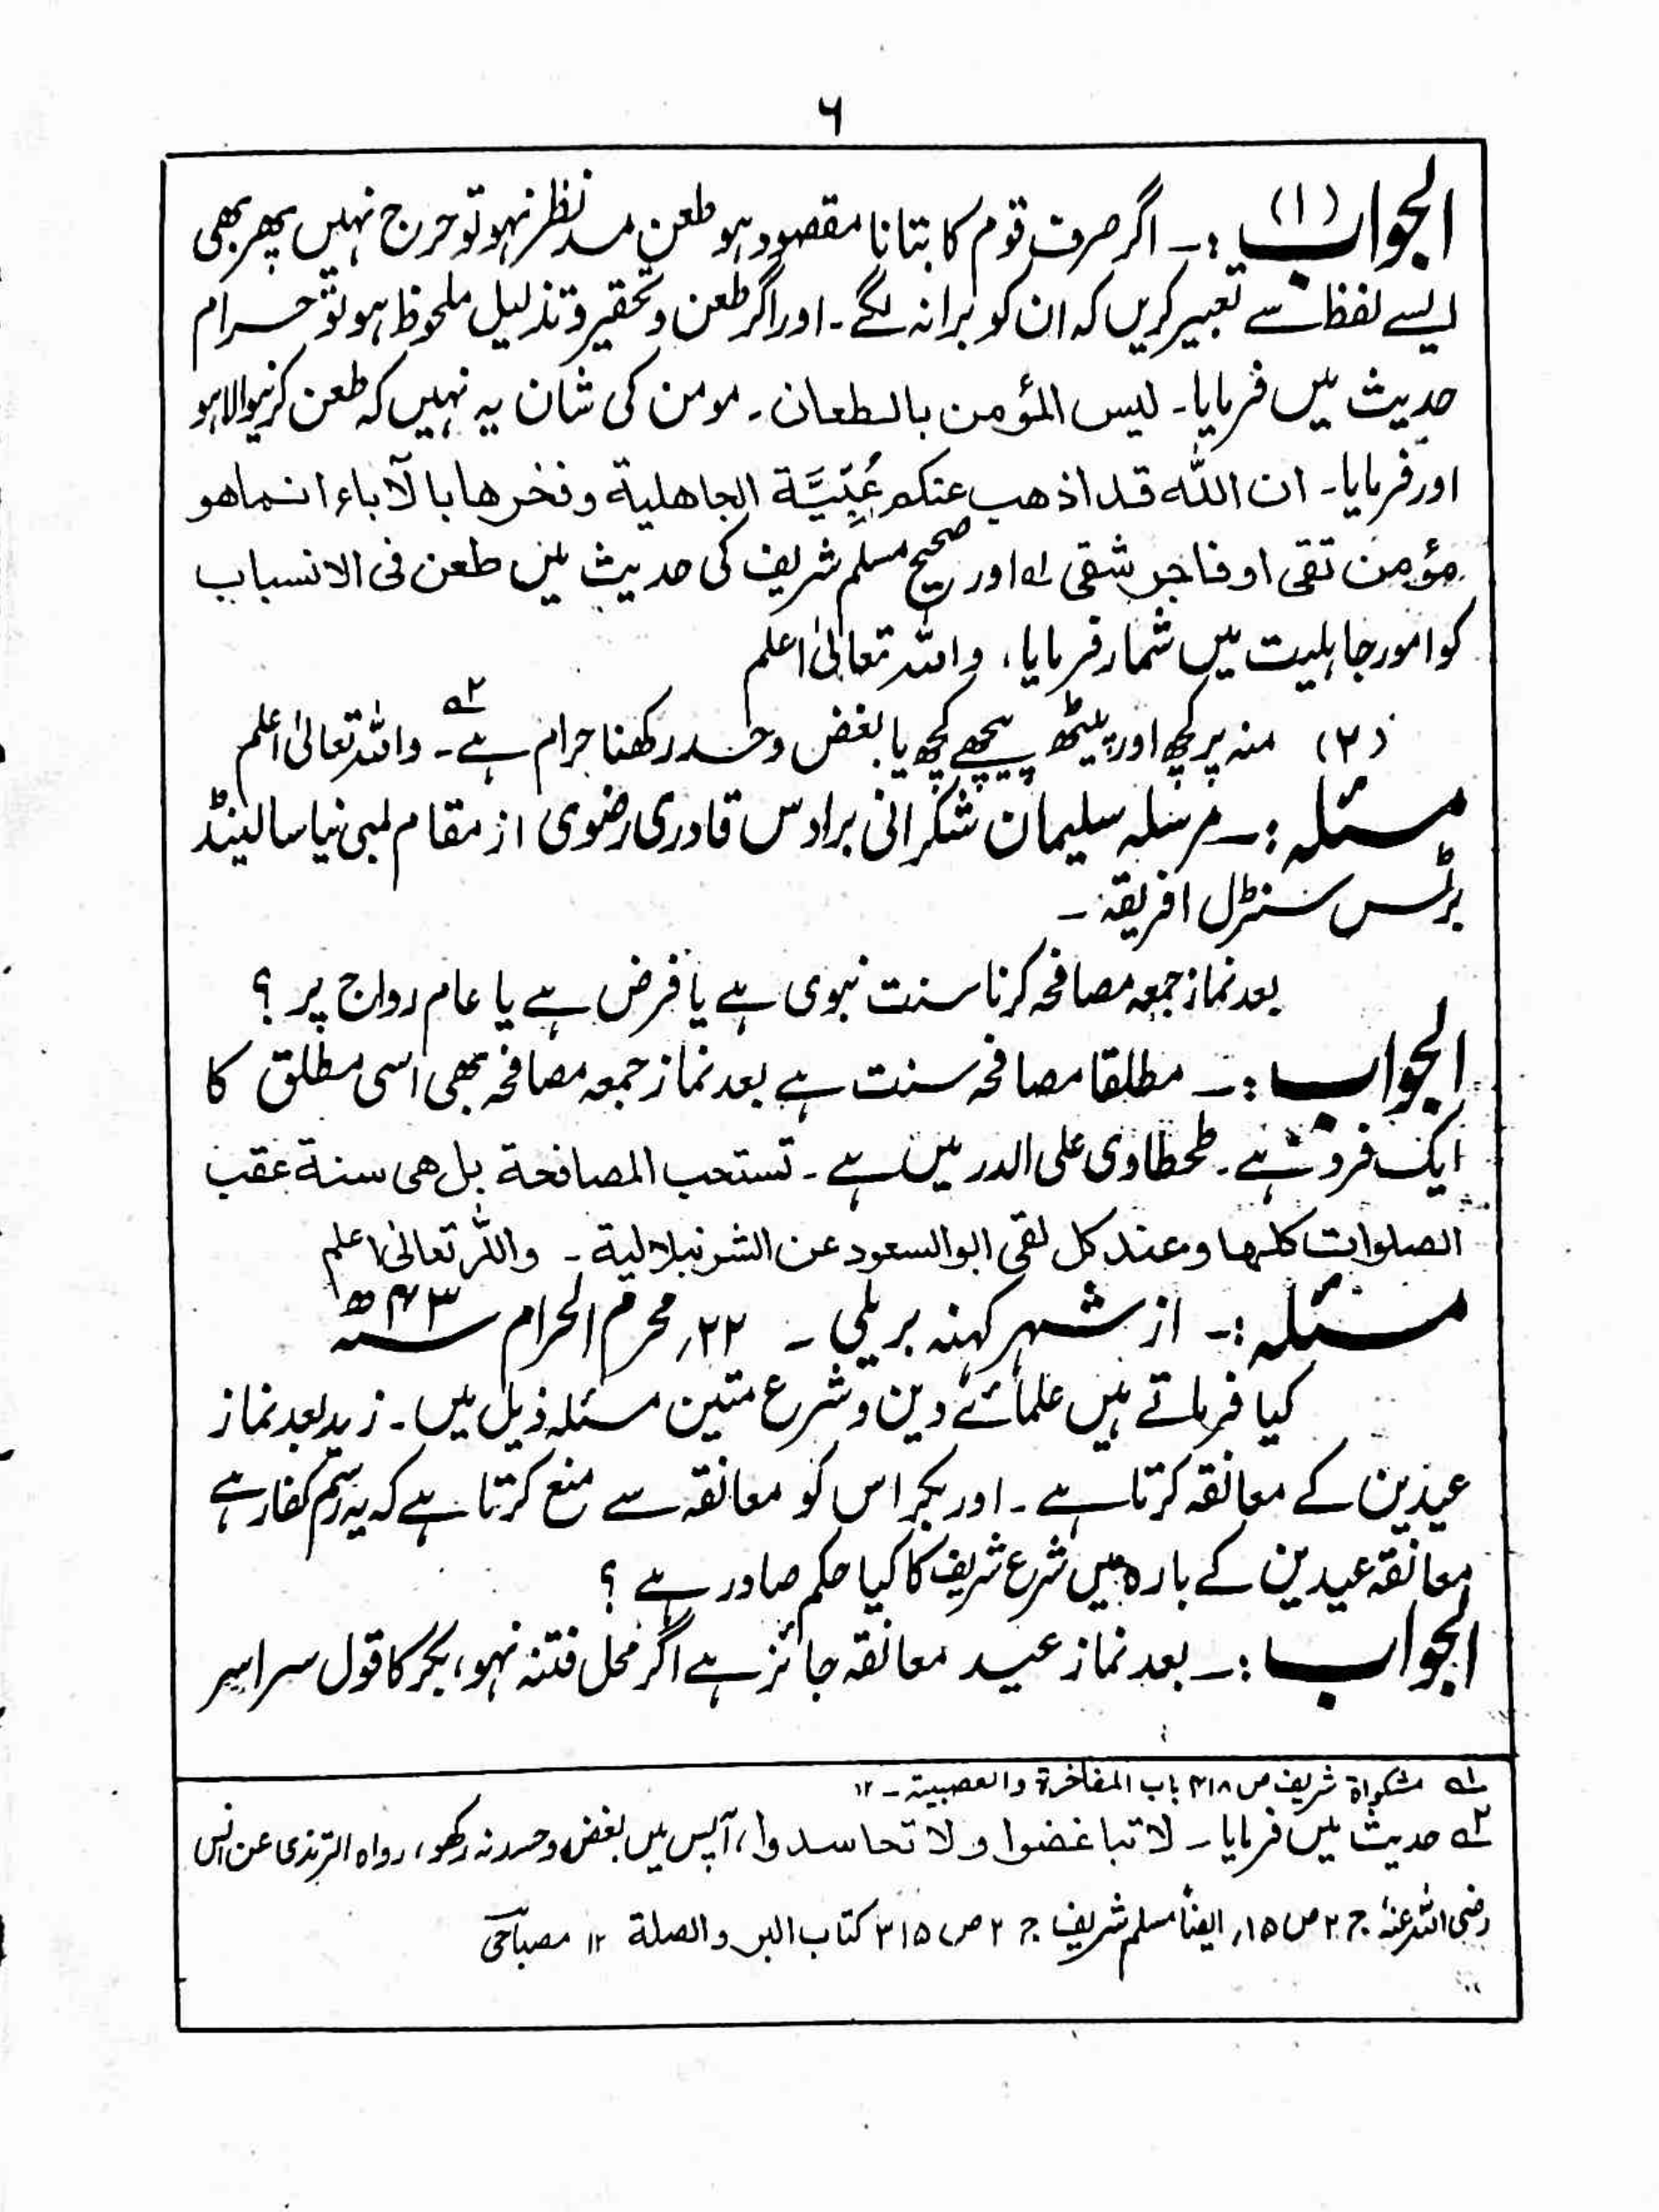 ۶
الجواب (۱) :۔ اگر صرف قوم کا بتانا مقصود ہو طعن مد نظر نہو تو حرج نہیں پھر بھی
ایسے لفظ سے تعبیر کریں کہ ان کو برا نہ لگے۔ اور اگر طعن و تحقیر و تذلیل ملحوظ ہو تو حرام
حدیث میں فرمایا۔ لیس المؤمن بالطعان۔ مومن کی شان یہ نہیں کہ طعن کرنیوالا ہو
اور فرمایا۔ ان اللہ قد اذھب عنکم عُبِّیَّة الجاھلیة وفخرھا بالآباء انما ھو
مؤمن تقی او فاجر شقی لہ اور صحیح مسلم شریف کی حدیث میں طعن فی الانسباب
کو امور جاہلیت میں شمار فرمایا، واللہ تعالیٰ اعلم
(۲) منہ پر کچھ اور پیٹھ پیچھے کچھ یا بغض و حسد رکھنا حرام ہے ۲ہ۔ واللہ تعالیٰ اعلم
مسئلہ :۔ مرسلہ سلیمان شکرانی برادس قادری رضوی از مقام لمبی نیاسالینڈ
برٹس سنٹرل افریقہ۔
بعد نماز جمعہ مصافحہ کرنا سنت نبوی ہے یا فرض ہے یا عام رواج پر ؟
الجواب :۔ مطلقا مصافحہ سنت ہے بعد نماز جمعہ مصافحہ بھی اسی مطلق کا
ایک فرد ہے۔ طحطاوی علی الدر میں ہے۔ تستحب المصافحة بل ھی سنة عقب
الصلوات کلہا وعند کل لقی ابوالسعود عن الشرنبلالیة۔ واللہ تعالیٰ اعلم
مسئلہ :۔ از شہر کہنہ بریلی ۔ ۲۲؍ محرم الحرام سنہ ۴۳ھ
کیا فرماتے ہیں علمائے دین و شرع متین مسئلہ ذیل میں۔ زید بعد نماز
عیدین کے معانقہ کرتا ہے۔ اور بکر اس کو معانقہ سے منع کرتا ہے کہ یہ رسم کفار ہے
معانقہ عیدین کے بارہ میں شرع شریف کا کیا حکم صادر ہے ؟
الجواب :۔ بعد نماز عید معانقہ جائز ہے اگر محل فتنہ نہو، بکر کا قول سراسر
۱ہ مشکواة شریف ص ۴۱۸ باب المفاخرة والعصبیة۔ ۱۲
۲ہ حدیث میں فرمایا۔ لا تباغضوا ولا تحاسدوا، آپس میں بغض و حسد نہ رکھو، رواہ الترمذی عن انس
رضی اللہ عنہ ج ۲ ص ۱۵، ایضاً مسلم شریف ج ۲ ص ۳۱۵ کتاب البر والصلة ۱۲ مصباحی